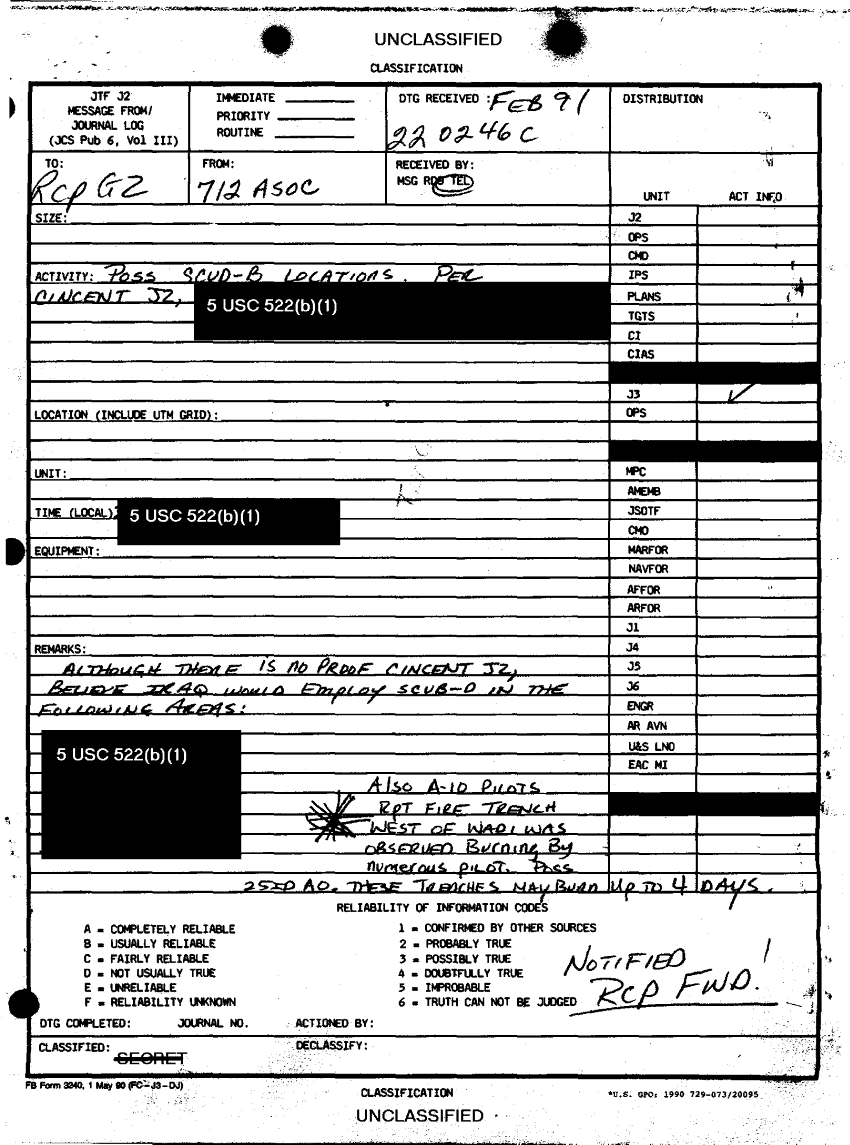 UNCLASSIFIED
CLASSIFICATION
JTF J2
MESSAGE FROM/
JOURNAL LOG
(JCS Pub 6, Vol III)
IMMEDIATE
PRIORITY
ROUTINE
DTG RECEIVED : FEB 91
22 0246 C
DISTRIBUTION
TO:
RCP G2
FROM:
712 ASOC
RECEIVED BY:
MSG RDO TEL
UNIT ACT INFO
SIZE:
ACTIVITY: POSS SCUD-B LOCATIONS. PER
CINCENT J2,
5 USC 522(b)(1)
LOCATION (INCLUDE UTM GRID):
UNIT:
TIME (LOCAL):
5 USC 522(b)(1)
EQUIPMENT:
REMARKS:
ALTHOUGH THERE IS NO PROOF CINCENT J2,
BELIEVE IRAQ WOULD EMPLOY SCUB-D IN THE
FOLLOWING AREAS:
5 USC 522(b)(1)
ALSO A-10 PILOTS
RPT FIRE TRENCH
WEST OF WADI WAS
OBSERVED BURNING BY
NUMEROUS PILOT. POSS
25ID AO. THESE TREACHES MAY BURN UP TO 4 DAYS.
J2
OPS
CMD
IPS
PLANS
TGTS
CI
CIAS
J3
OPS
MPC
AMEMB
JSOTF
CMO
MARFOR
NAVFOR
AFFOR
ARFOR
J1
J4
J5
J6
ENGR
AR AVN
U&S LNO
EAC MI
RELIABILITY OF INFORMATION CODES
A = COMPLETELY RELIABLE
B = USUALLY RELIABLE
C = FAIRLY RELIABLE
D = NOT USUALLY TRUE
E = UNRELIABLE
F = RELIABILITY UNKNOWN
1 = CONFIRMED BY OTHER SOURCES
2 = PROBABLY TRUE
3 = POSSIBLY TRUE
4 = DOUBTFULLY TRUE
5 = IMPROBABLE
6 = TRUTH CAN NOT BE JUDGED
NOTIFIED !
RCP FWD.
DTG COMPLETED: JOURNAL NO. ACTIONED BY:
CLASSIFIED: SECRET DECLASSIFY:
FB Form 3240, 1 May 90 (FC-J3-DJ)
CLASSIFICATION
*U.S. GPO: 1990 729-073/20095
UNCLASSIFIED